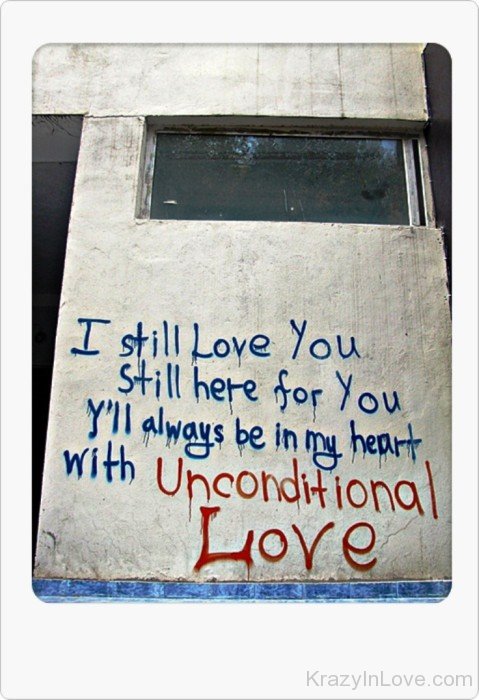 I still Love You
Still here for You
Y'll always be in my heart
with Unconditional
Love
KrazyInLove.com